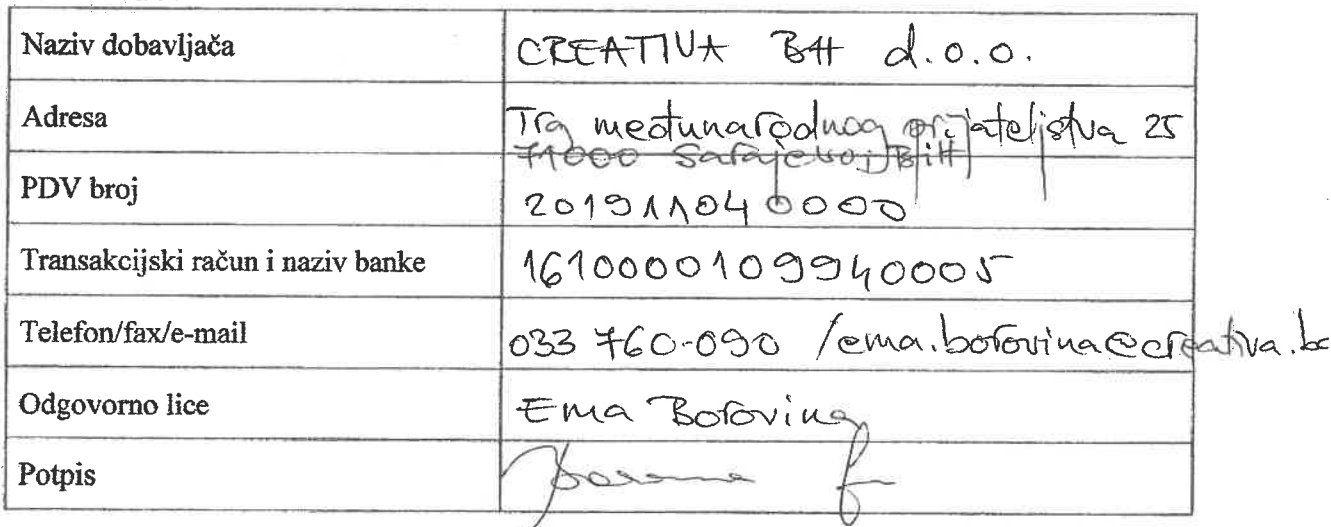 Naziv dobavljača CREATIVA BH d.o.o.
Adresa Trg međunarodnog prijateljstva 25
71000 Sarajevo, BiH
PDV broj 201911040000
Transakcijski račun i naziv banke 1610000109940005
Telefon/fax/e-mail 033 760-090 /ema.borovina@creativa.ba
Odgovorno lice Ema Borovina
Potpis